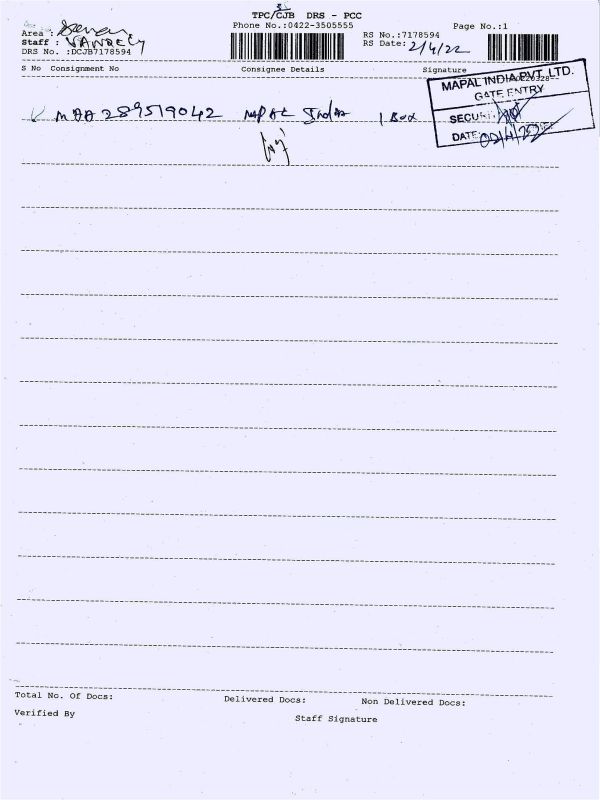 TPC/CJB DRS - PCC
Phone No.:0422-3505555
Page No.:1
Area :
Staff :
DRS No. :DCJB7178594
RS No.:7178594
RS Date: 2/4/22
S No Consignment No Consignee Details Signature
MAA 289519042 MAPAL India 1 Box
MAPAL INDIA PVT. LTD.
GATE ENTRY
SECURITY
DATE: 02/4/22
Total No. Of Docs: Delivered Docs: Non Delivered Docs:
Verified By
Staff Signature